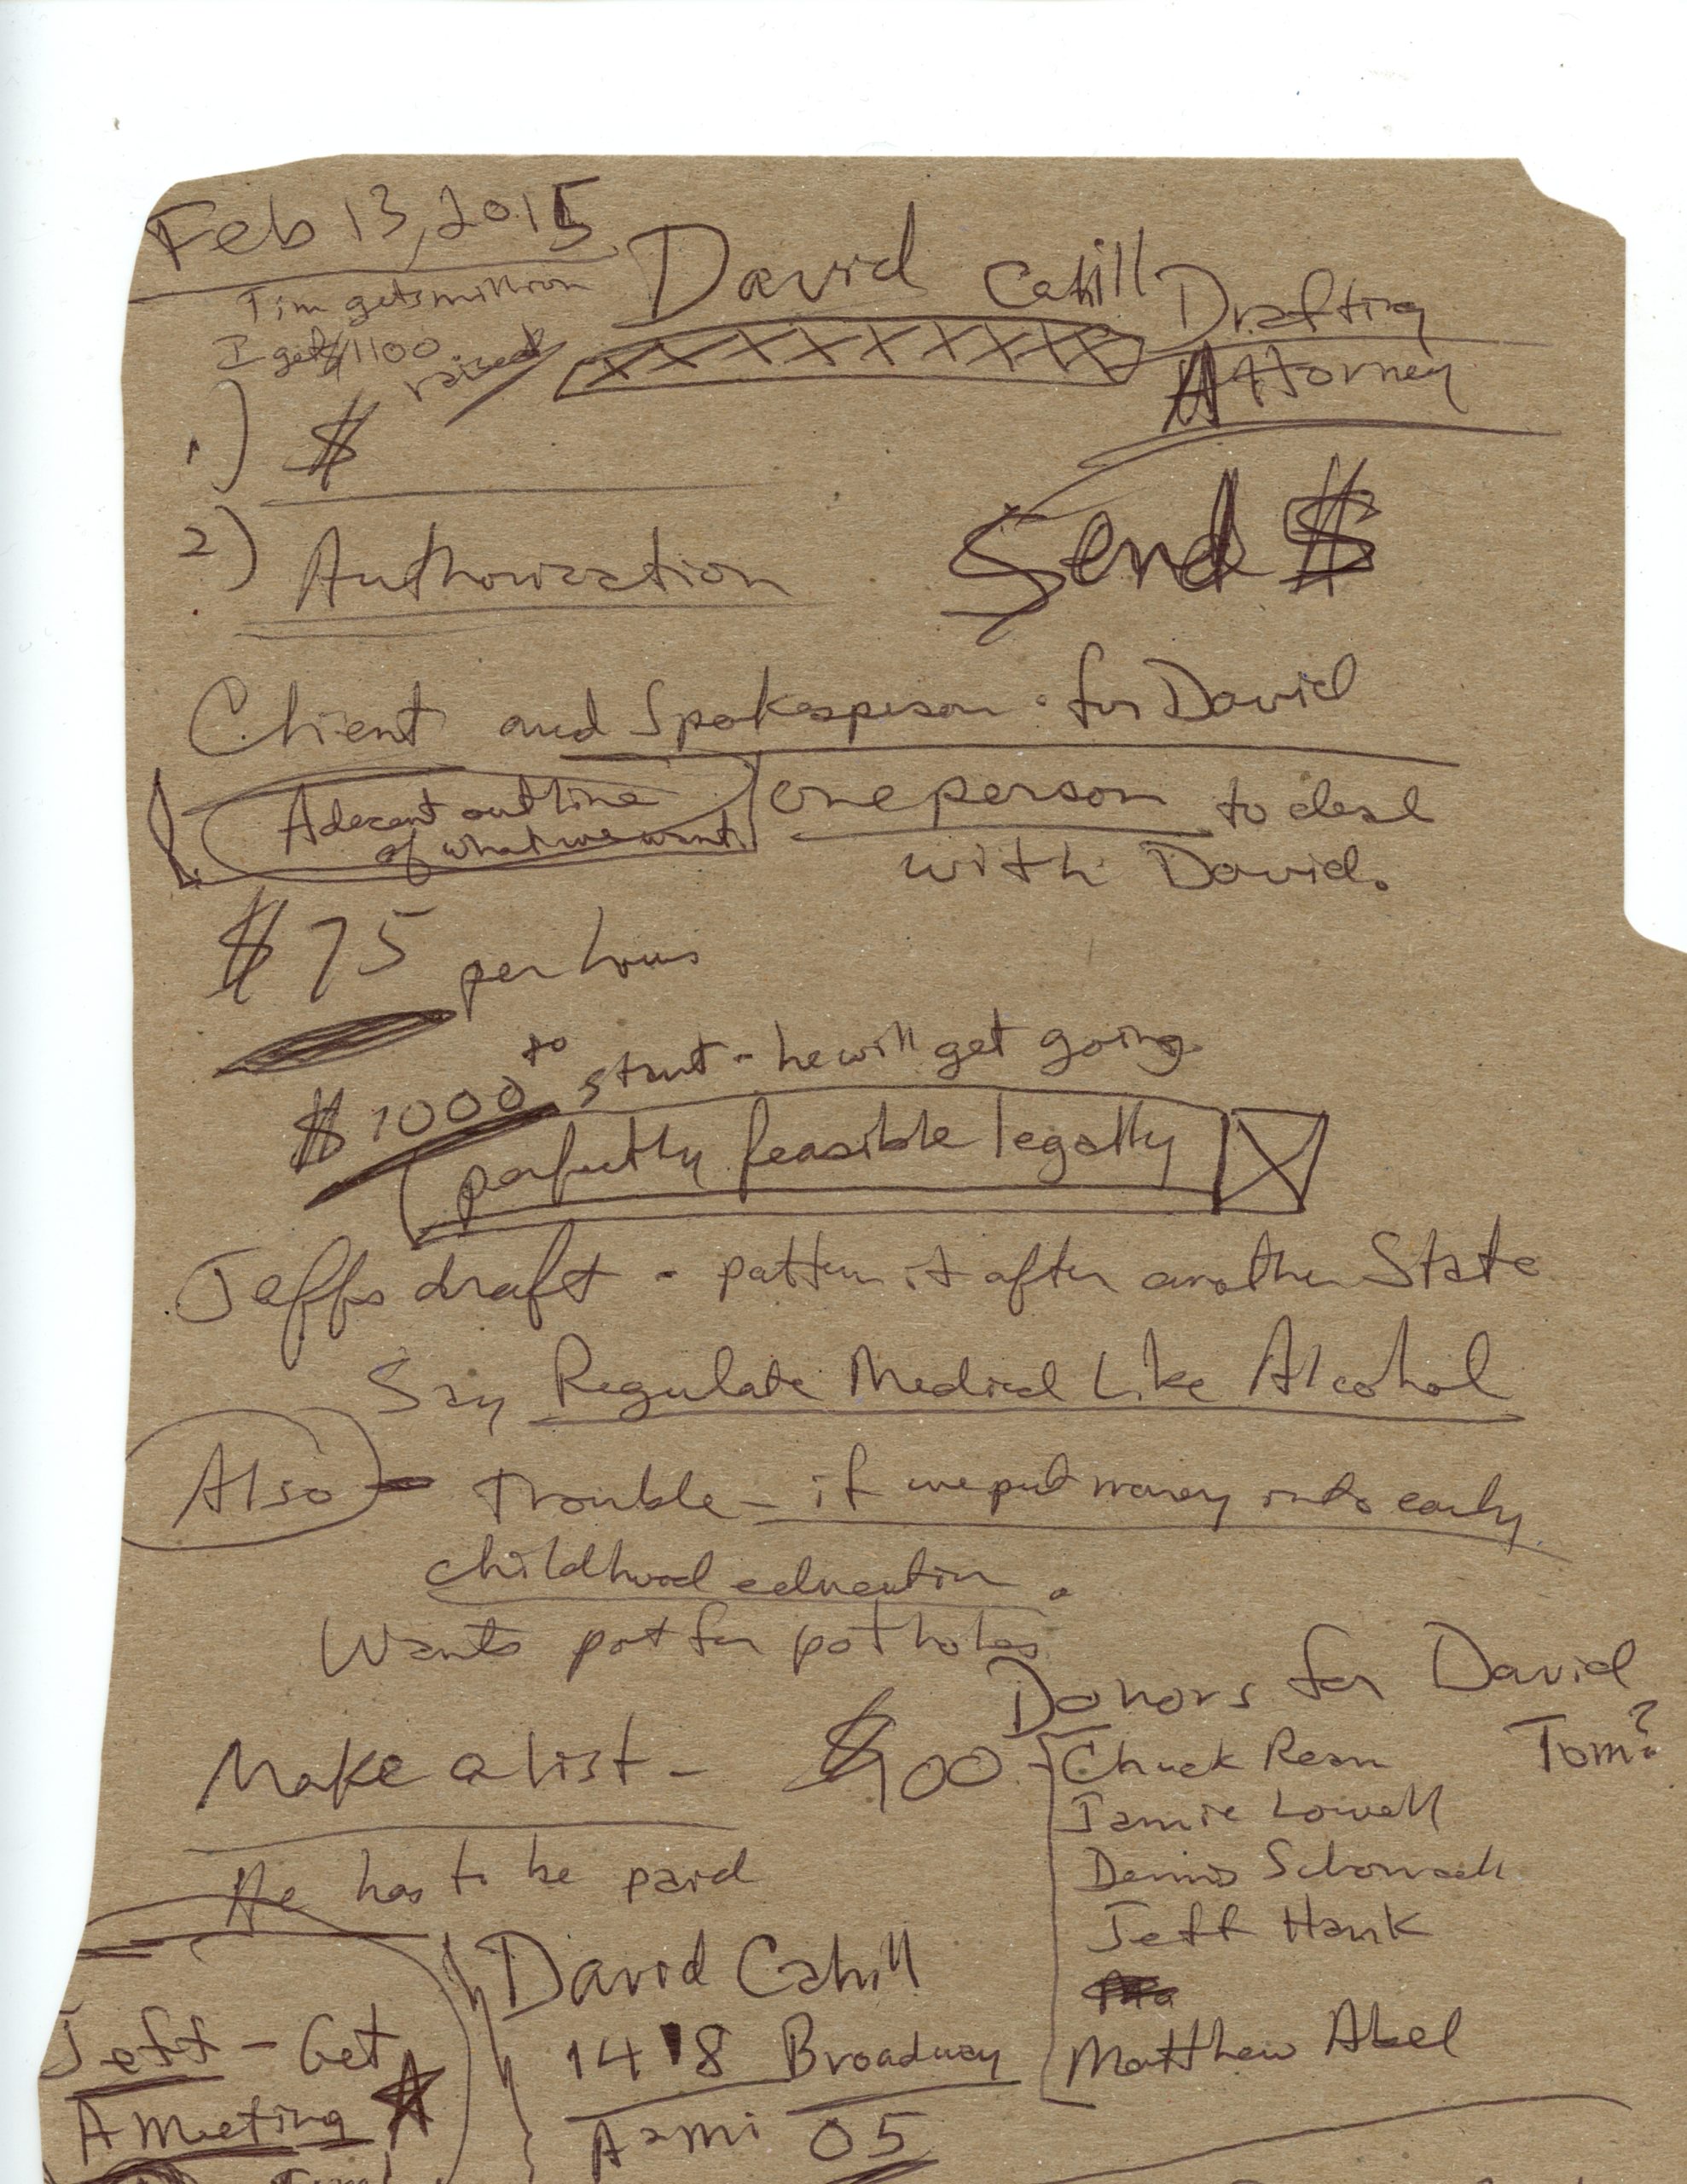 Feb 13, 2015
David Cahill
Drafting
Attorney
Tim gets million
I get $1100
raised
1.) $
2) Authorization
Send $
Client and Spokesperson for David
A decent outline
of what we want
one person to deal
with David.
$75 per hour
$1000 to start - he will get going
perfectly feasible legally
Jeffs draft - pattern it after another State
Say Regulate Medical Like Alcohol
Also - Trouble - if we put money into early
childhood education.
Wants pot for potholes
Donors for David
Make a list - $100
Chuck Ream
Tom?
Jamie Lowell
Dennis
Jeff Hank
Matthew Abel
He has to be paid
David Cahill
1418 Broadway
A2 mi 05
Jeff - Get
A Meeting